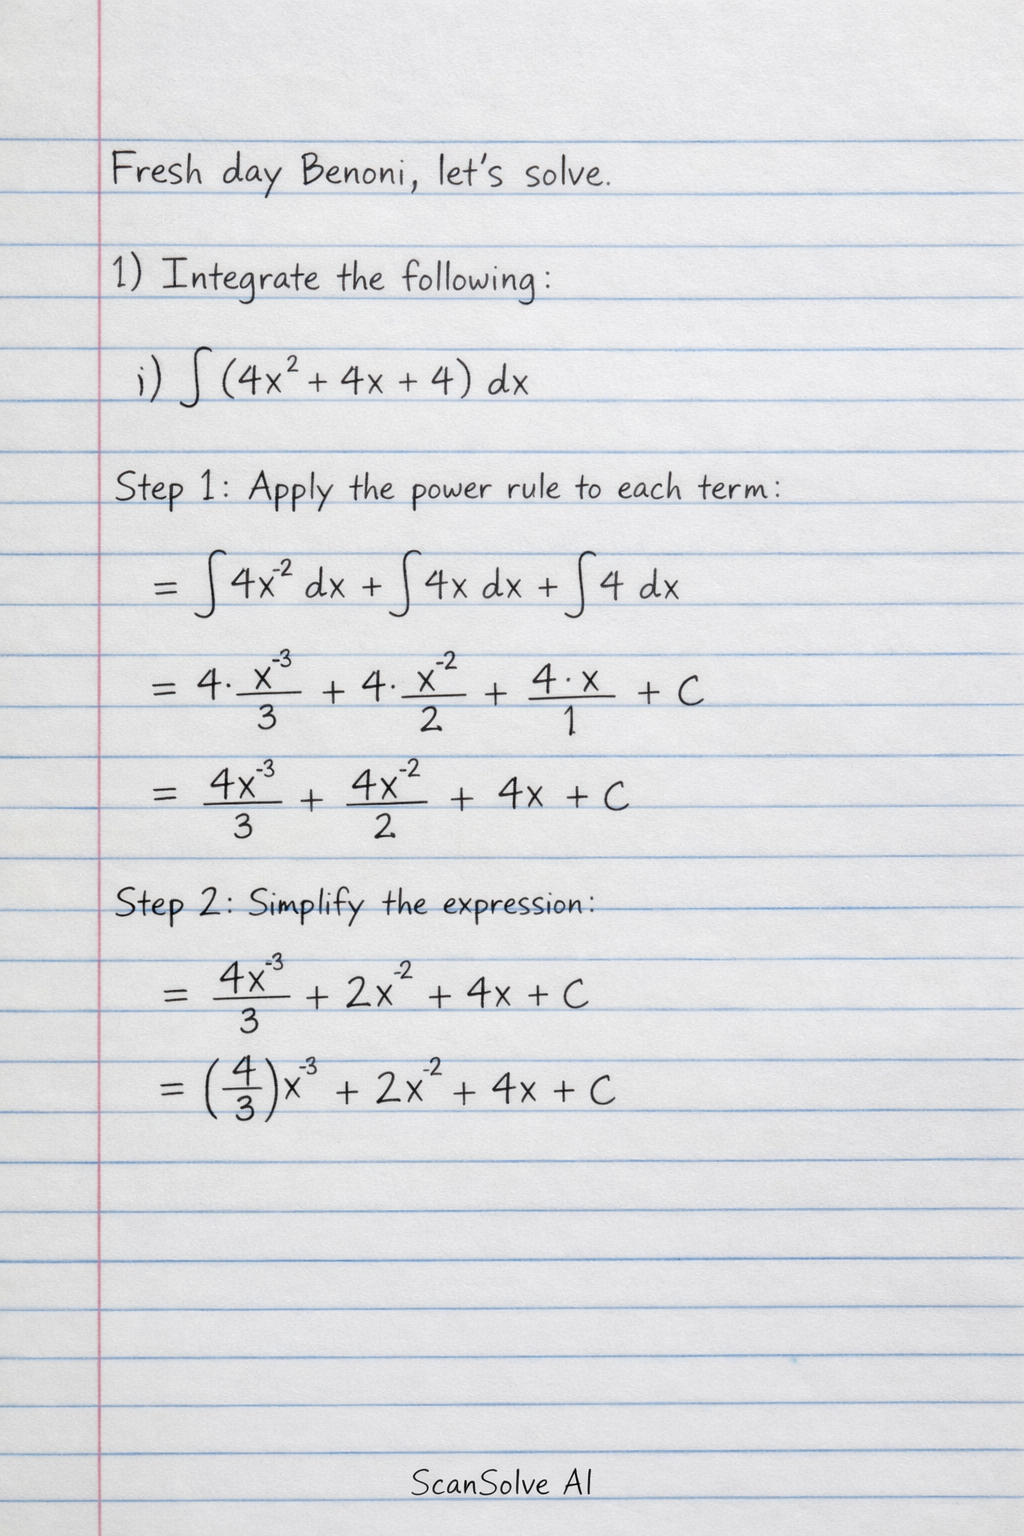 Fresh day Benoni, let's solve.
1) Integrate the following:
i) ∫ (4x² + 4x + 4) dx
Step 1: Apply the power rule to each term:
= ∫ 4x⁻² dx + ∫ 4x dx + ∫ 4 dx
= 4 · x⁻³/3 + 4 · x⁻²/2 + 4 · x/1 + C
= 4x⁻³/3 + 4x⁻²/2 + 4x + C
Step 2: Simplify the expression:
= 4x⁻³/3 + 2x⁻² + 4x + C
= (4/3)x⁻³ + 2x⁻² + 4x + C
ScanSolve AI